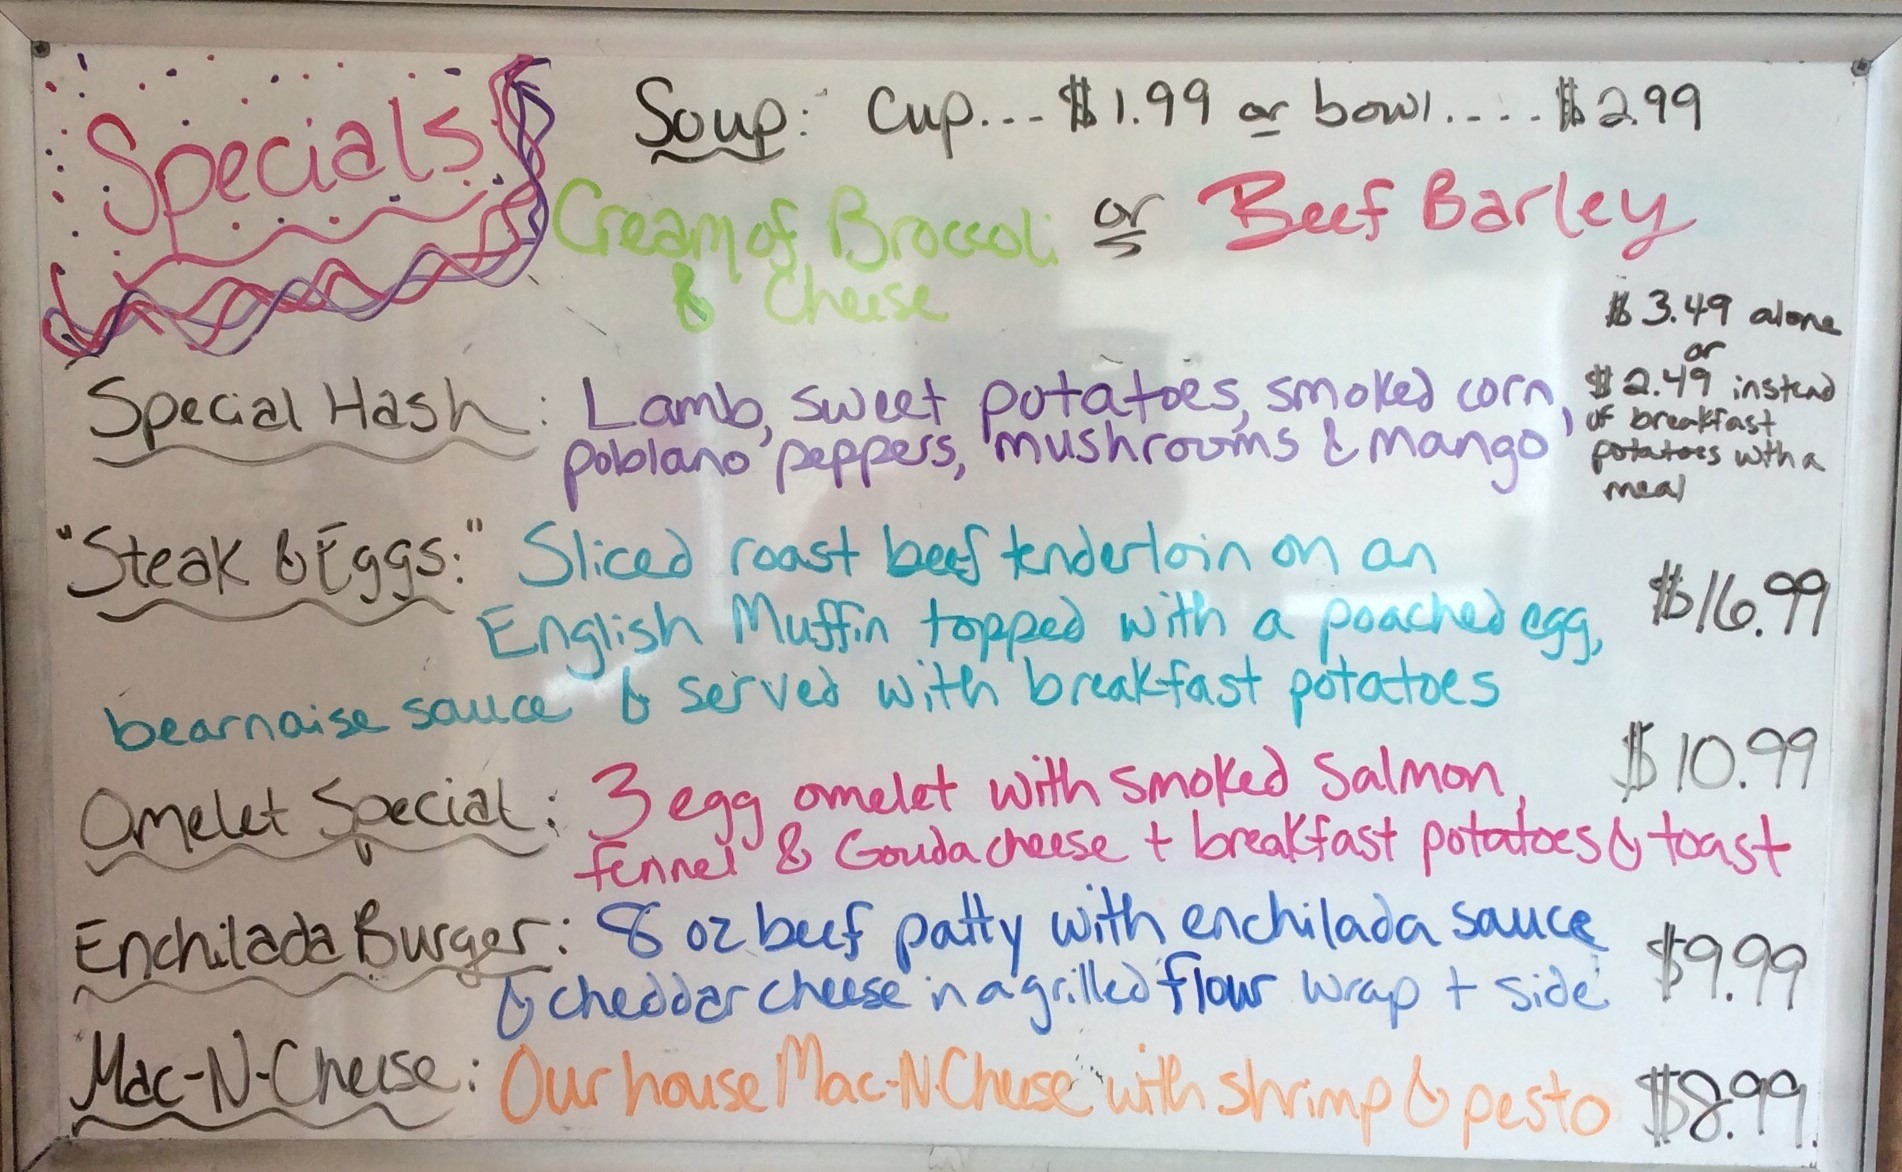 Specials
Soup: Cup...$1.99 or bowl....$2.99
Cream of Broccoli or Beef Barley
& Cheese
$3.49 alone
or
$2.49 instead
of breakfast
potatoes with a
meal
Special Hash: Lamb, sweet potatoes, smoked corn,
poblano peppers, mushrooms & mango
"Steak & Eggs:" Sliced roast beef tenderloin on an
English Muffin topped with a poached egg, $16.99
bearnaise sauce & served with breakfast potatoes
Omelet Special: 3 egg omelet with smoked salmon, $10.99
fennel & Gouda cheese + breakfast potatoes & toast
Enchilada Burger: 8 oz beef patty with enchilada sauce $9.99
& cheddar cheese in a grilled flour wrap + side
Mac-N-Cheese: Our house Mac-N-Cheese with shrimp & pesto $8.99